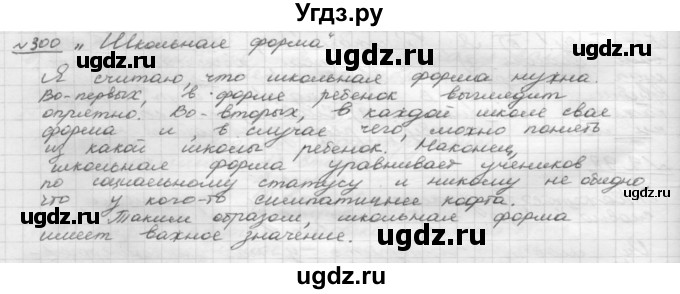 Угдз.ру
№300 „Школьная форма“
Я считаю, что школьная форма нужна.
Во-первых, в форме ребенок выглядит
опрятно. Во-вторых, в каждой школе своя
форма и, в случае чего, можно понять
из какой школы ребенок. Наконец,
школьная форма уравнивает учеников
по социальному статусу и никому не обидно
что у кого-то симпатичнее кофта.
Таким образом, школьная форма
имеет важное значение.
ugdz.ru ugdz.ru ugdz.ru
ugdz.ru ugdz.ru ugdz.ru
ugdz.ru ugdz.ru ugdz.ru
ugdz.ru ugdz.ru ugdz.ru
ugdz.ru